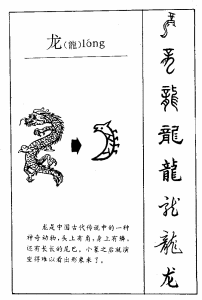 龙(龍)lóng
龙是中国古代传说中的一种
神奇动物，头上有角，身上有鳞，
还有长长的尾巴。小篆之后就演
变得难以看出形象来了。
龍
龍
龍
龍
龙